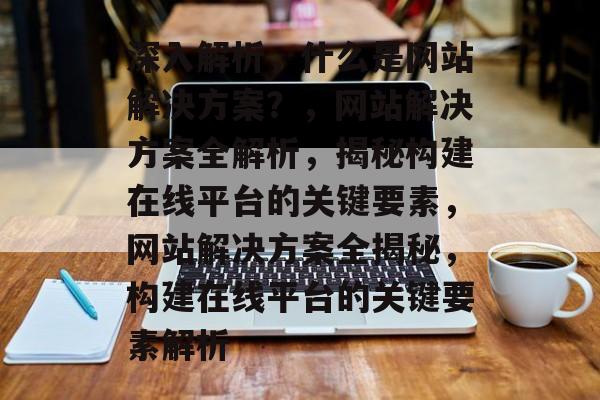 深入解析，什么是网站
解决方案？，网站解决
方案全解析，揭秘构建
在线平台的关键要素，
网站解决方案全揭秘，
构建在线平台的关键要
素解析